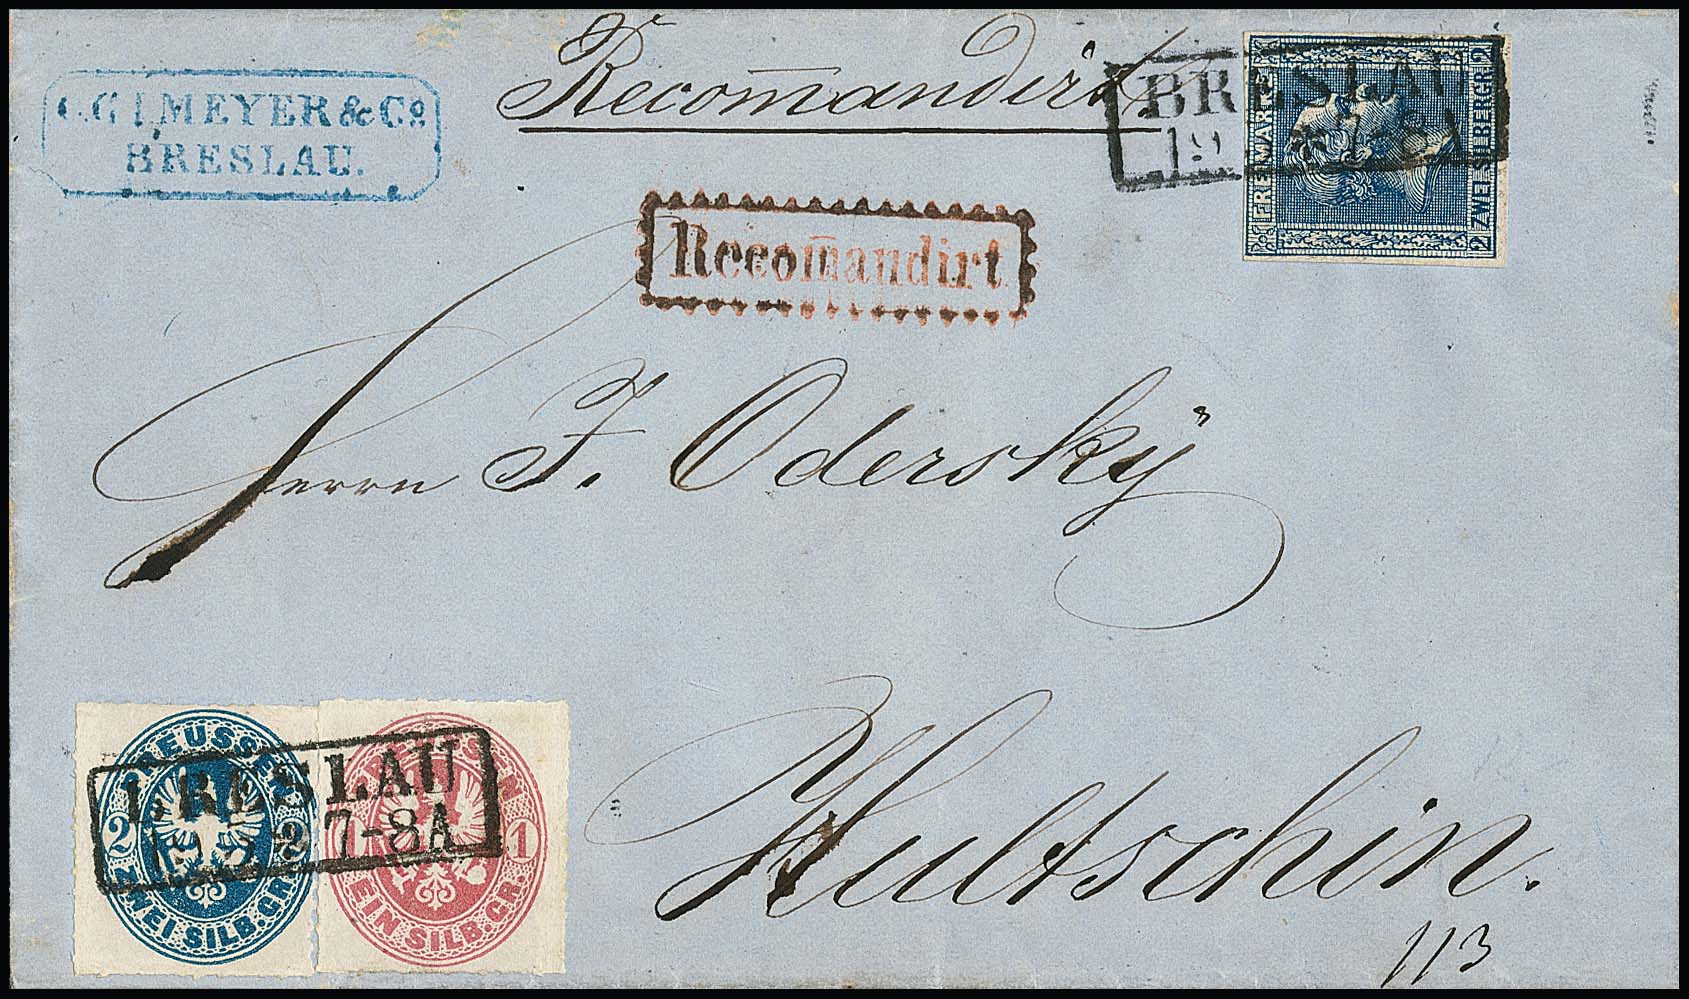 Recom̄andirt
MEYER & Co
BRESLAU.
BRESLAU
19
FREIMARKE
2 ZWEI SILBERGR. 2
Recom̄andirt
Herrn J. Oderskÿ
Hultschin.
113
PREUSSEN
2 2
ZWEI SILB. GR.
PREUSSEN
1 1
EIN SILB. GR.
BRESLAU
7-8A